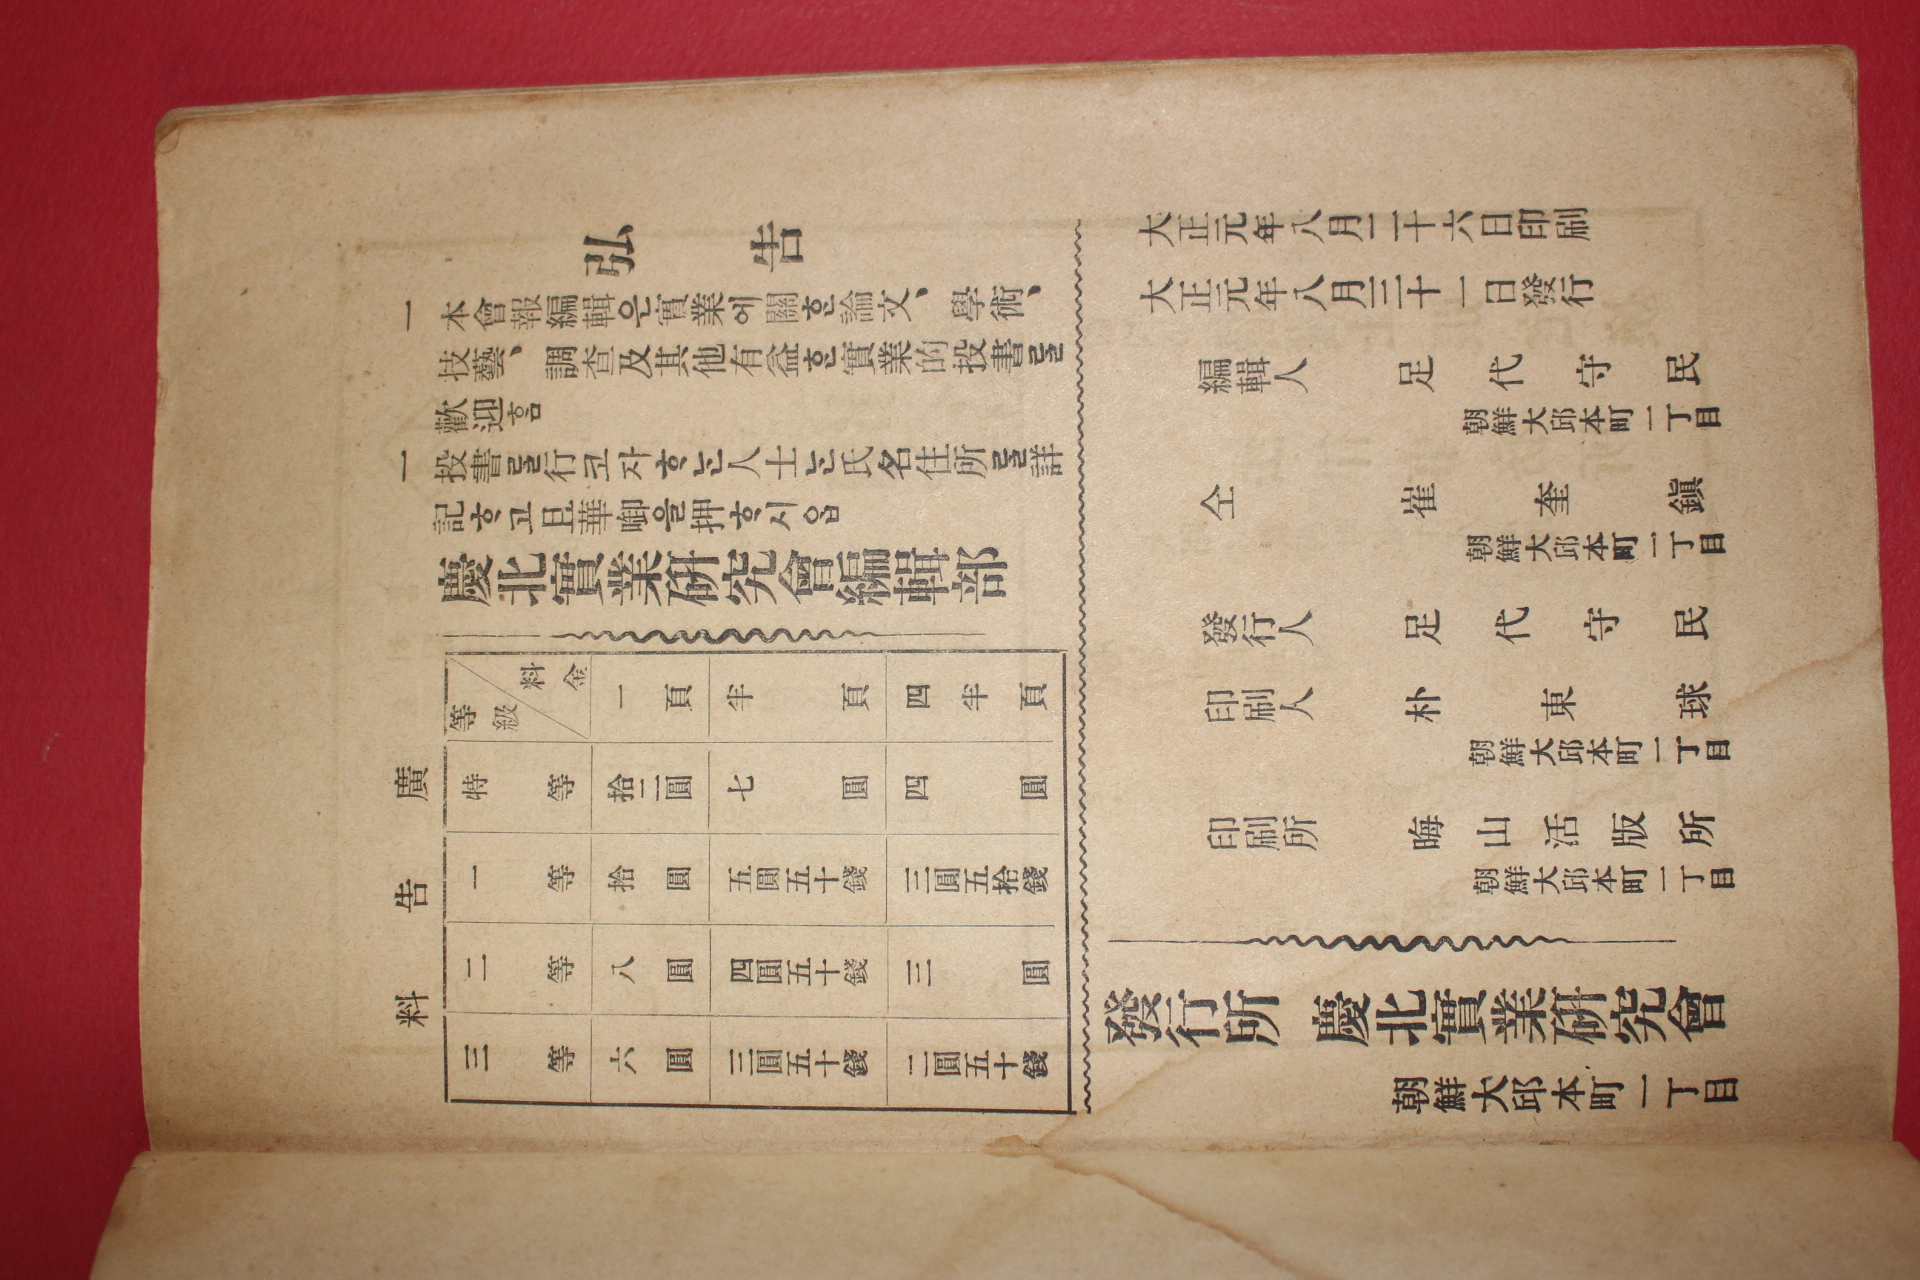 弘告
一 本會報編輯은實業에關ᄒᆞᆫ論文、學術、
技藝、調查及其他有益ᄒᆞᆫ實業的投書ᄅᆞᆯ
歡迎ᄒᆞᆷ
一 投書ᄅᆞᆯ行코자ᄒᆞᄂᆞᆫ人士ᄂᆞᆫ氏名住所ᄅᆞᆯ詳
記ᄒᆞ고且華啣을押ᄒᆞ시ᄋᆞᆸ
慶北實業硏究會編輯部
廣告料
等級 料金 一頁 半頁 四半頁
特等 拾二圓 七圓 四圓
一等 拾圓 五圓五十錢 三圓五拾錢
二等 八圓 四圓五十錢 三圓
三等 六圓 三圓五十錢 二圓五十錢
大正元年八月二十六日印刷
大正元年八月三十一日發行
編輯人 足代守民
朝鮮大邱本町一丁目
仝 崔奎鎭
朝鮮大邱本町一丁目
發行人 足代守民
印刷人 朴東球
朝鮮大邱本町一丁目
印刷所 晦山活版所
朝鮮大邱本町一丁目
發行所 慶北實業硏究會
朝鮮大邱本町一丁目